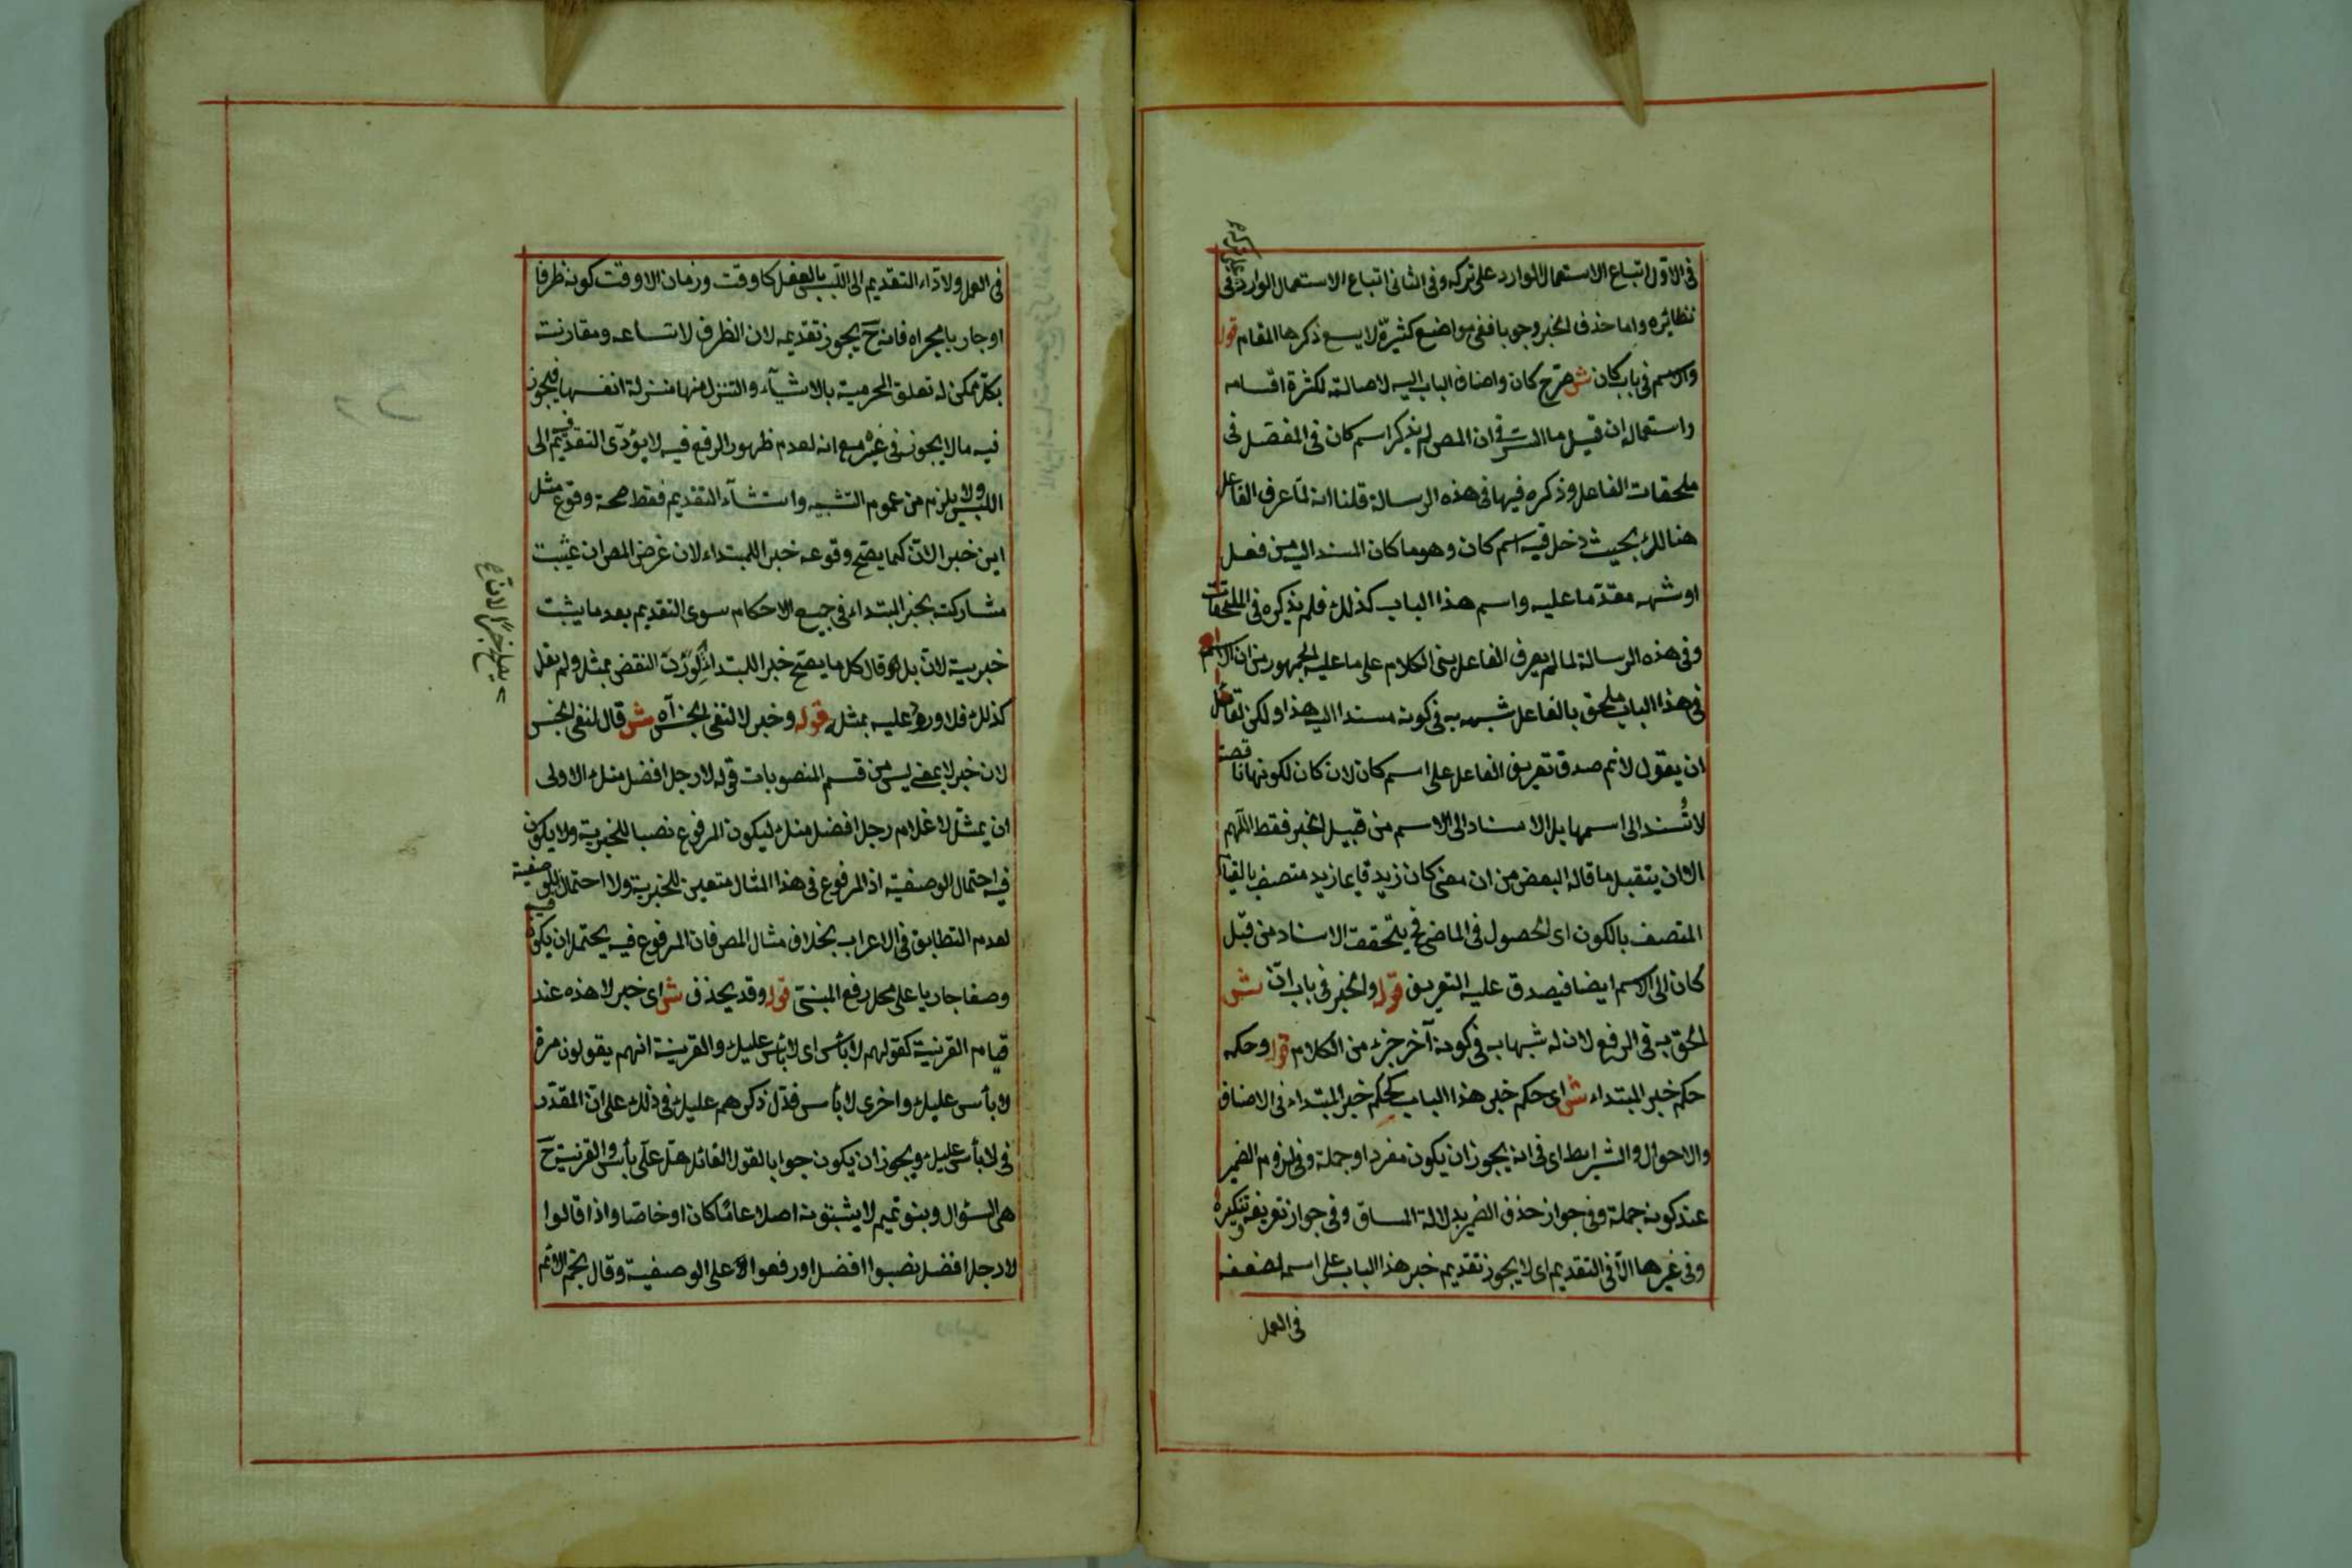 فى الاوّل اتباع الاستعمال الوارد على تركه وفى الثانى اتباع الاستعمال الوارد فى
نظائره واما حذف الخبر وجوبا ففى مواضع كثيرة لا يسع ذكرها المقام قوله
والاسم فى باب كان ش كان واضاف الباب اليه لاصالته لكثرة اقسامه
واستعماله ان قيل ما السر فى ان المص لم يذكر اسم كان فى المفصّل فى
ملحقات الفاعل وذكره فيها فى هذه الرسالة قلنا انه لمّا عرف الفاعل
هنالك بحيث دخل فيه اسم كان وهو ما كان المسند اليه من فعل
او شبهه مقدّما عليه واسم هذا الباب كذلك فلم يذكره فى الملحقات
وفى هذه الرسالة لما لم يعرف الفاعل بنى الكلام على ما عليه الجمهور من ان الاسم
فى هذا الباب ملحق بالفاعل شبهه به فى كونه مسندا اليه هذا ولكن لقائل
ان يقول لا نم صدق تعريف الفاعل على اسم كان لان كان لكونها ناقصة
لا تُسند الى اسمها بل الاسناد الى الاسم من قبيل الخبر فقط اللّهم
الا ان يتقبل ما قاله البعض من ان معنى كان زيد قايما زيد متصف بالقيام
المتصف بالكون اى الحصول فى الماضى فح يتحقق الاسناد من قبل
كان الى الاسم ايضا فيصدق عليه التعريف قوله والخبر فى باب انّ ش
لحق به فى الرفع لان له شبها به فى كونه آخر جزء من الكلام قوله وحكمه
حكم خبر المبتداء ش اى حكم خبر هذا الباب كحكم خبر المبتداء فى الاصناف
والاحوال والشرايط اى فى انه يجوز ان يكون مفردا وجملة وفى لزوم الضمير
عند كونه جملة وفى جواز حذف الضمير بدلالة المساق وفى جواز تعريفه وتنكيره
وفى غيرها الّا فى التقديم اى لا يجوز تقديم خبر هذا الباب على اسمه لضعفه
فى العمل
فى العمل ولاداء التقديم الى اللبس بالفعل كا وقت وزمان الا وقت كونه ظرفا
او جاريا مجراه فانه ح يجوز تقديمه لان الظرف لاتساعه ومقارنته
بكل ممكن له تعلق المحرمية بالاشياء والتنزل منها منزلة انفسها فيجوز
فيه ما لا يجوز فى غيره مع انه لعدم ظهور الرفع فيه لا يؤدّى التقديم فيه الى
اللبس ولا يلزم من عموم التشبيه واستثناء التقديم فقط صحة وقوع مثل
اين خبرا لانّ كما يصح وقوعه خبرا للمبتداء لان غرض المص ان يثبت
مشاركته بخبر المبتداء فى جميع الاحكام سوى التقديم بعد ما يثبت
خبريته لانّ بل لو قال كل ما يصح خبر المبتداء لورد النقض بمثل ولم يقل
كذلك فلا ورود عليه بمثله قوله وخبر لا لنفى الجنس آه ش قال لنفى الجنس
لان خبر لا بمعنى ليس من قسم المنصوبات قوله لا رجل افضل منك الاولى
ان يمثل لا غلام رجل افضل منك ليكون المرفوع نصبا للخبرية ولا يكون
فيه احتمال الوصفية اذ المرفوع فى هذا المثال متعين للخبرية ولا احتمال للوصفية فيه
لعدم التطابق فى الاعراب بخلاف مثال المص فان المرفوع فيه يحتمل ان يكون
وصفا جاريا على محل رفع المبنىّ قوله وقد يحذف ش اى خبر لا هذه عند
قيام القرينة كقولهم لا بأس اى لا بأس عليك والقرينة انهم يقولون مرة
لا بأس عليك واخرى لا بأس فدل ذكرهم عليك فى ذلك على انّ المقدّر
فى لا بأس عليك ويجوز ان يكون جوابا لقول القائل هل علىّ بأس والقرينة ح
هى السؤال وبنو تميم لا يثبتونه اصلا عامّا كان او خاصّا واذا قالوا
لا رجل افضل نصبوا افضل او رفعوا على الوصفية وقال نجم الائمّة